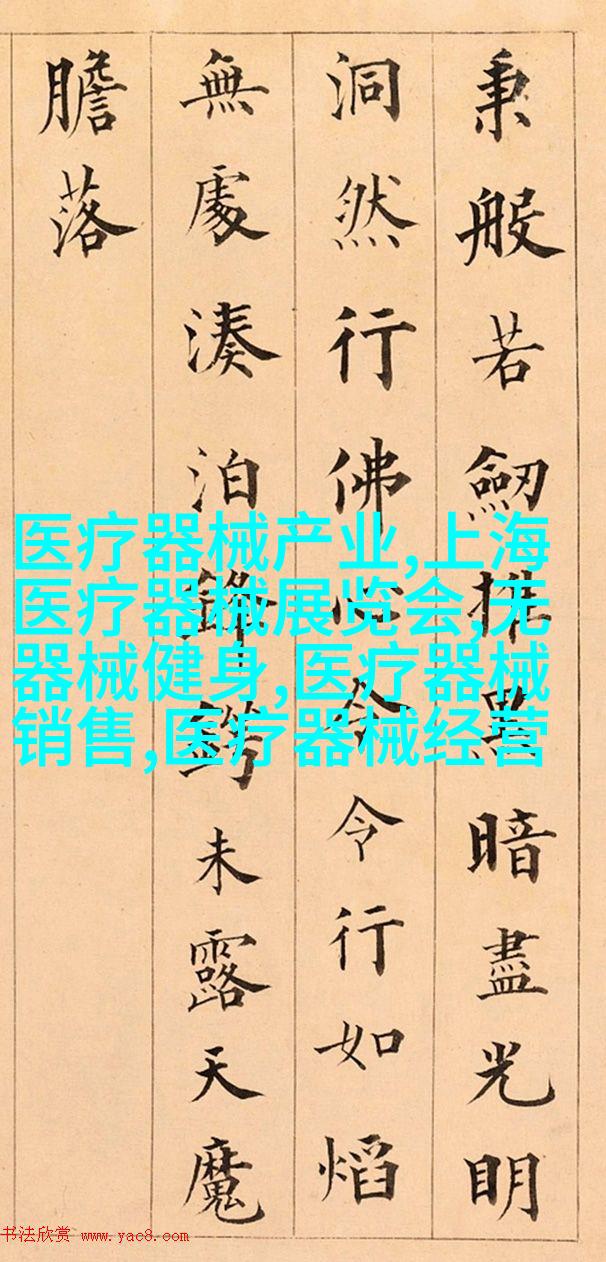 秉般若劒黑暗盡光明
洞然行佛心令令行如熖
無處湊泊鋒鍔未露天魔
膽落
医疗器械产业,上海
医疗器械展览会,无
器械健身,医疗器械
销售,医疗器械经营
书法欣赏 www.yac8.com